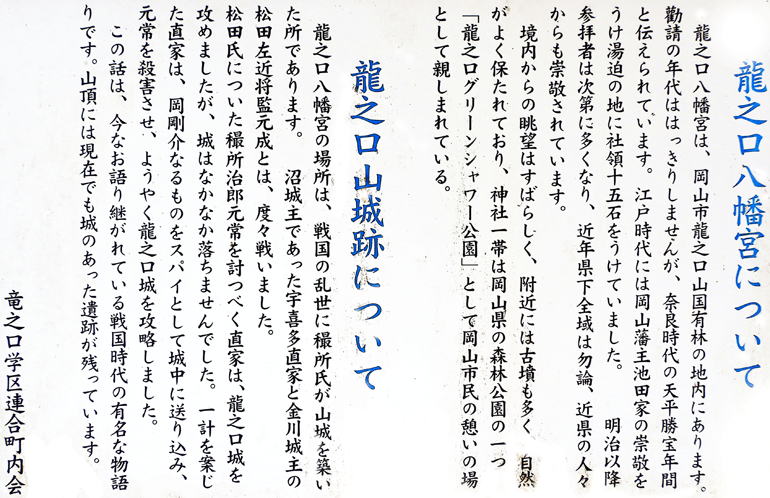 龍之口八幡宮について
龍之口八幡宮は、岡山市龍之口山国有林の地内にあります。
勸請の年代ははっきりしませんが、奈良時代の天平勝宝年間
と伝えられています。江戸時代には岡山藩主池田家の崇敬を
うけ湯迫の地に社領十五石をうけていました。 明治以降
参拝者は次第に多くなり、近年県下全域は勿論、近県の人々
からも崇敬されています。
境内からの眺望はすばらしく、附近には古墳も多く 自然
がよく保たれており、神社一帯は岡山県の森林公園の一つ
「龍之口グリーンシャワー公園」として岡山市民の憩いの場
として親しまれている。
龍之口山城跡について
龍之口八幡宮の場所は、戦国の乱世に穝所氏が山城を築い
た所であります。 沼城主であった宇喜多直家と金川城主の
松田左近将監元成とは、度々戦いました。
松田氏についた穝所治郎元常を討つべく直家は、龍之口城を
攻めましたが、城はなかなか落ちませんでした。一計を案じ
た直家は、岡剛介なるものをスパイとして城中に送り込み、
元常を殺害させ、ようやく龍之口城を攻略しました。
この話は、今なお語り継がれている戦国時代の有名な物語
りです。山頂には現在でも城のあった遺跡が残っています。
竜之口学区連合町内会